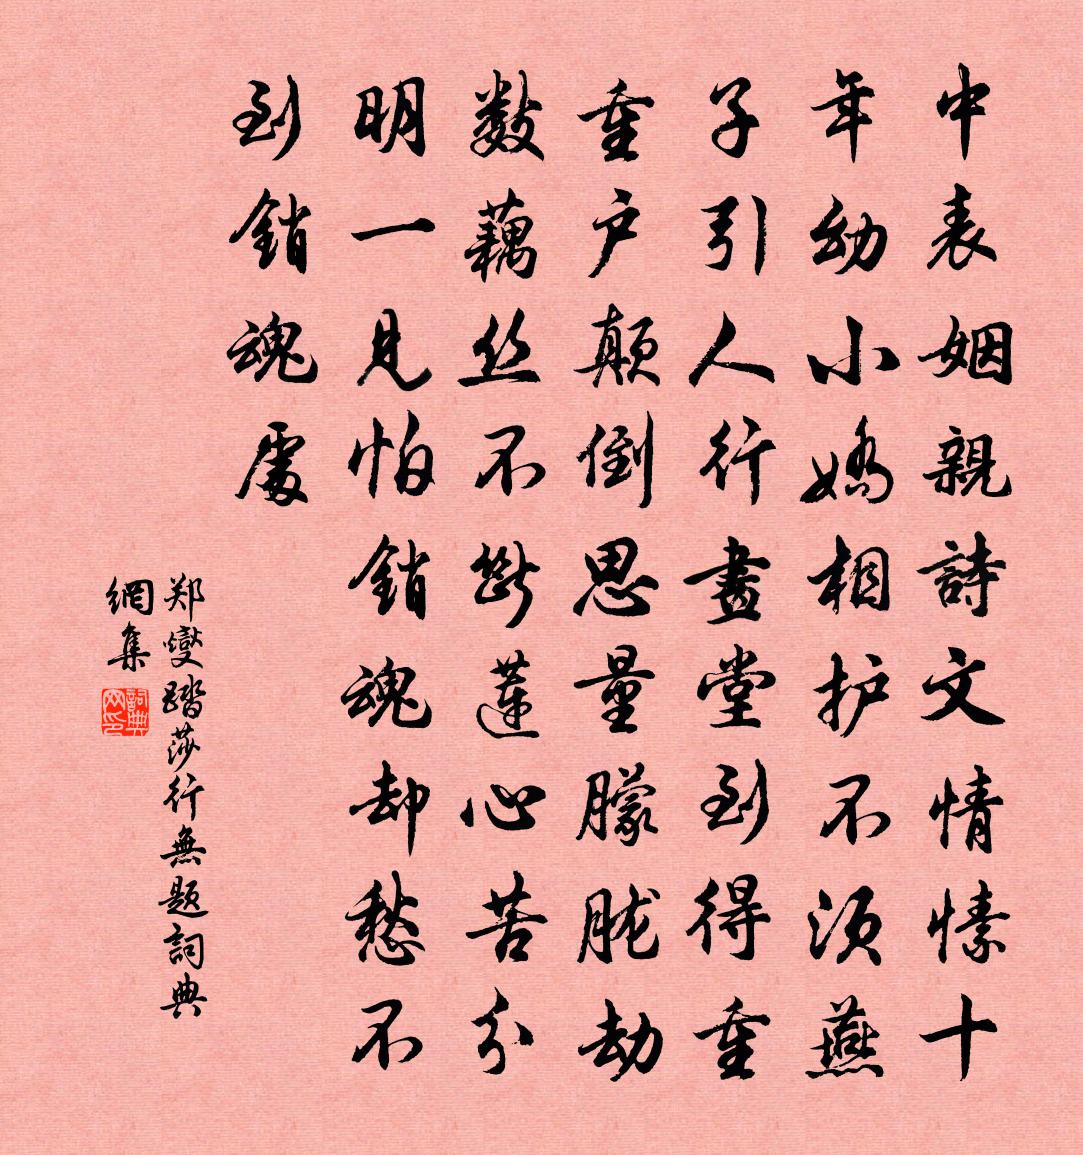 中表姻親詩文情愫十
年幼小嬌相护不須燕
子引人行畫堂到得重
重户顛倒思量朦胧劫
数藕丝不断蓮心苦分
明一見怕銷魂却愁不
到銷魂處
郑燮踏莎行無题詞典
網集
詞典網印